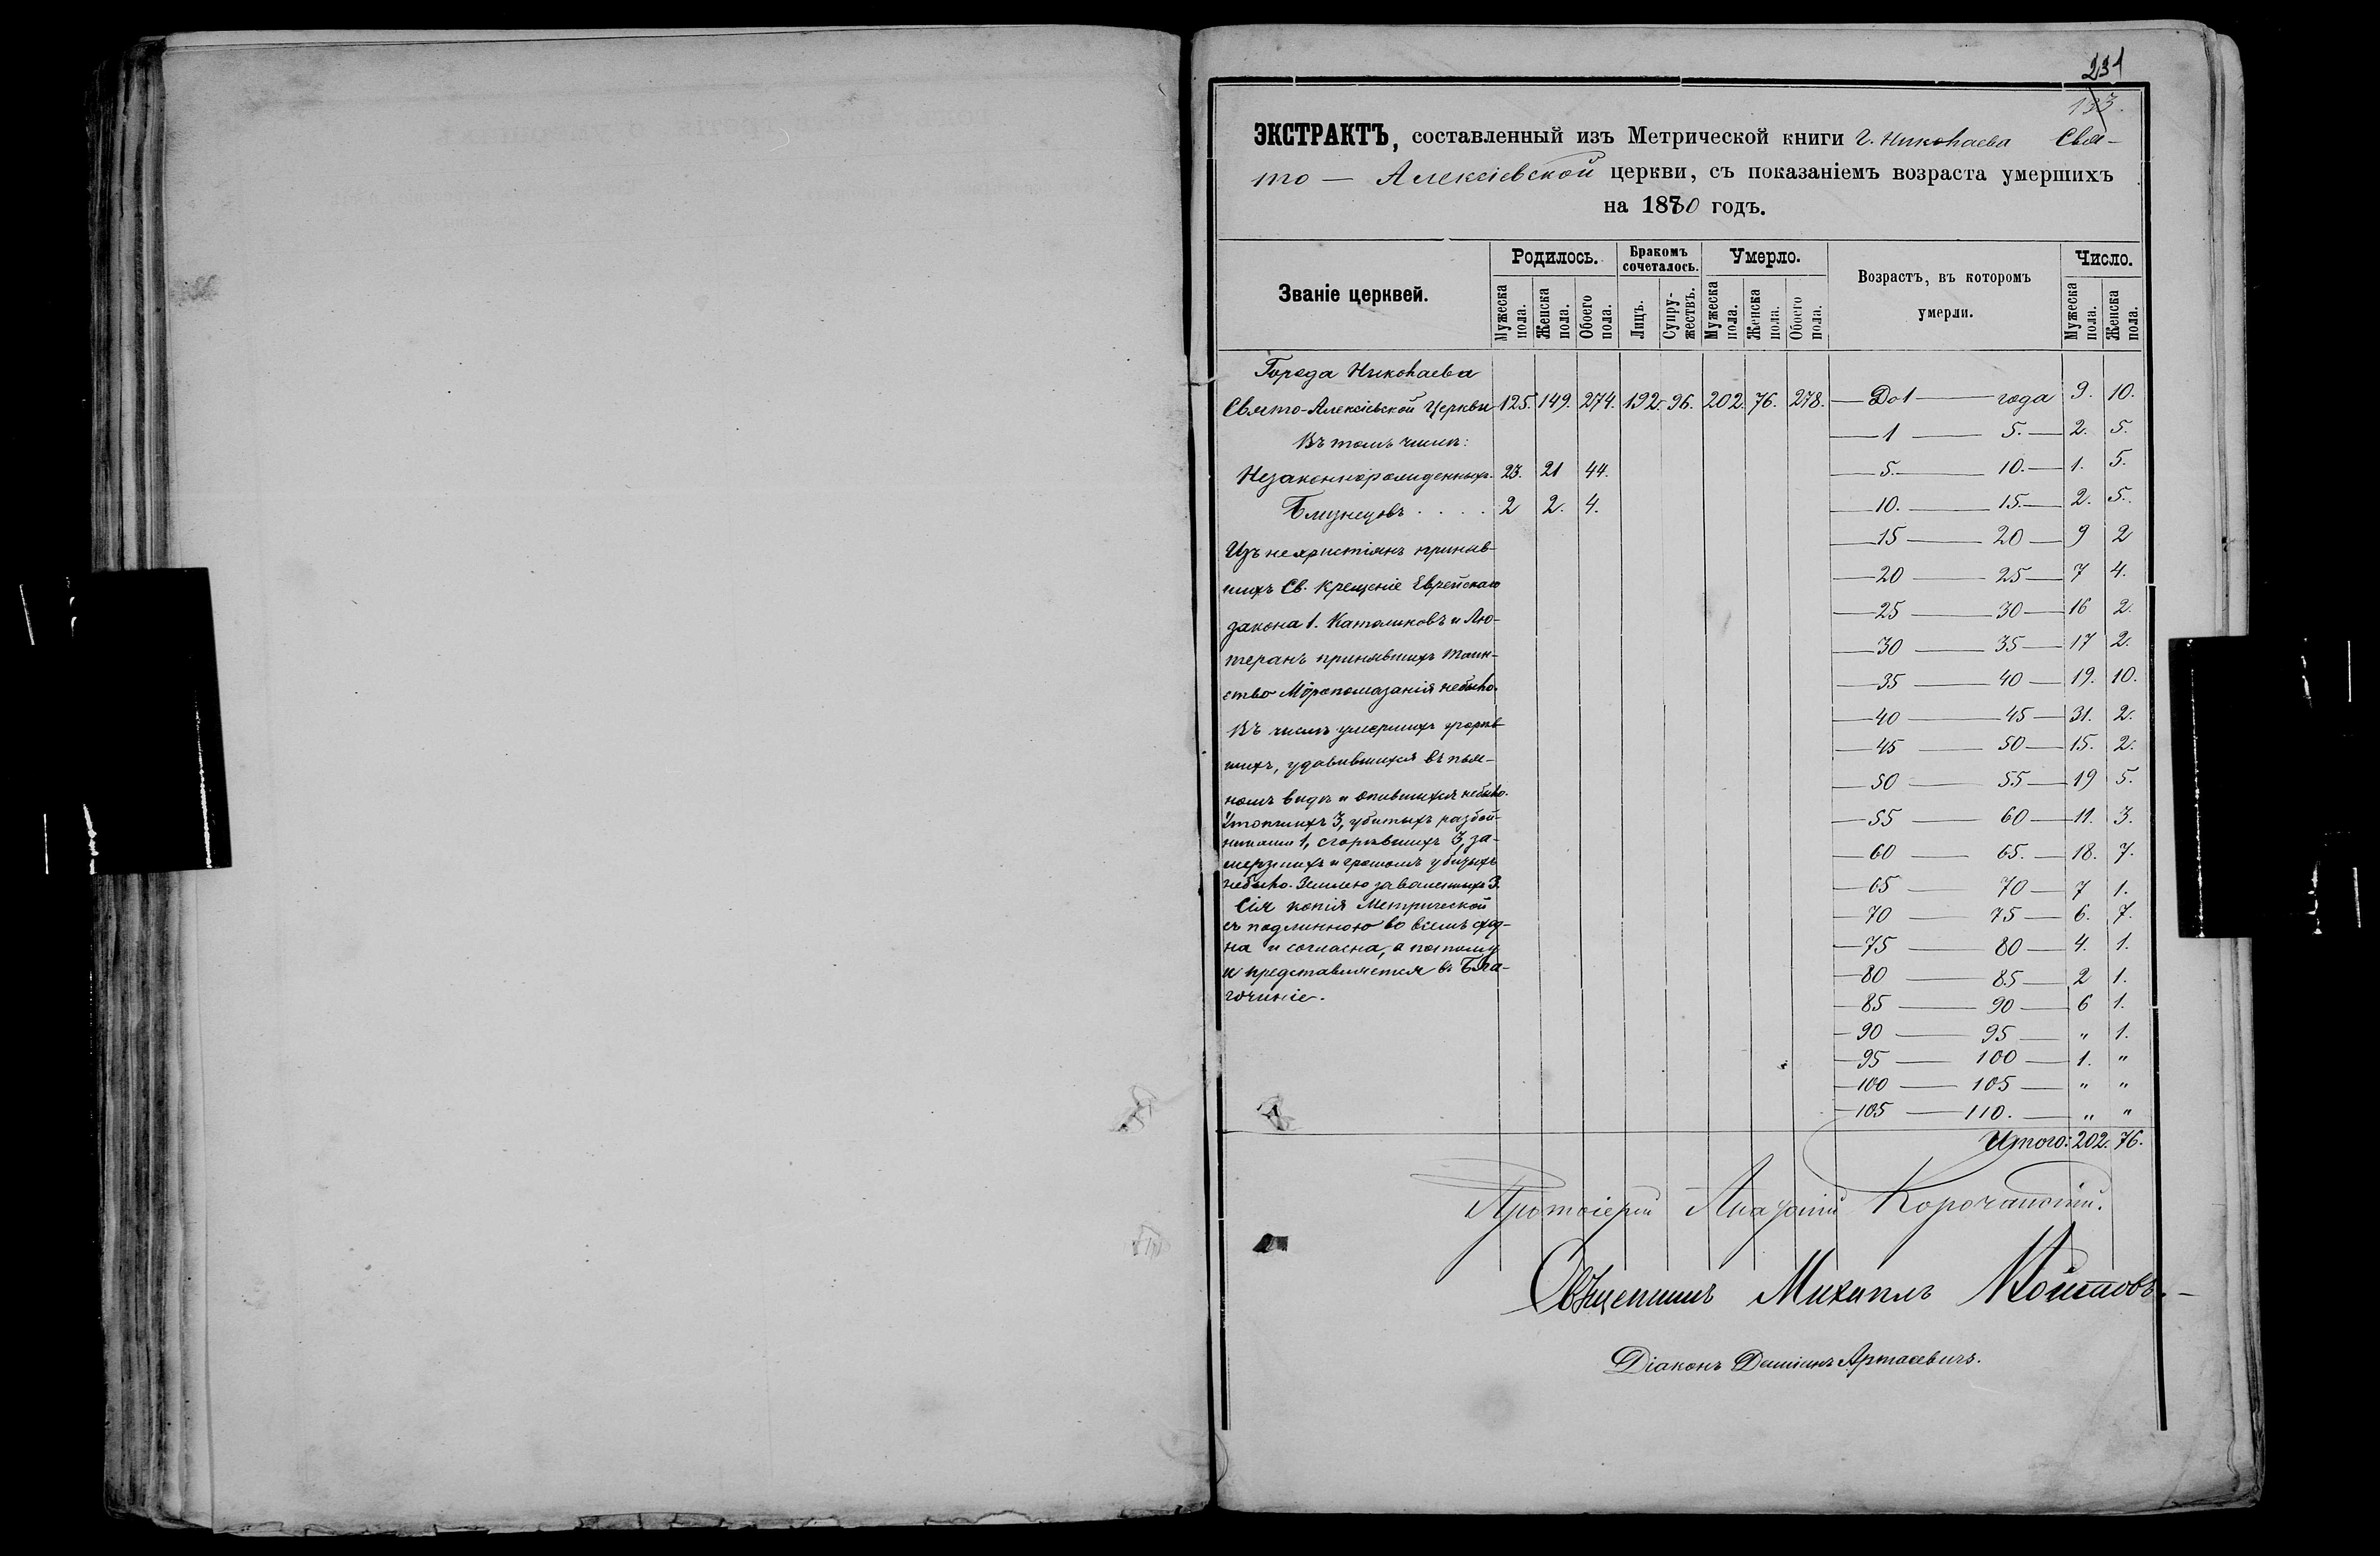 231
133.
ЭКСТРАКТЪ, составленный изъ Метрической книги г. Николаева Свя-
то — Алексіевской церкви, съ показаніемъ возраста умершихъ
на 1880 годъ.
Званіе церквей.
Родилось.
Бракомъ сочеталось.
Умерло.
Возрастъ, въ которомъ умерли.
Число.
Мужеска пола.
Женска пола.
Обоего пола.
Лицъ.
Супру-жествъ.
Мужеска пола.
Женска пола.
Обоего пола.
Мужеска пола.
Женска пола.
Города Николаева
Свято-Алексіевской Церкви 125. 149. 274. 192. 96. 202. 76. 278.
Въ томъ числѣ:
Незаконнорожденныхъ. 23. 21 44.
Близнецовъ . . . . 2 2. 4.
Изъ нехристіянъ приняв-
шихъ Св. Крещеніе Еврейскаго
закона 1. Католиковъ и Лю-
теранъ принявшихъ Таин-
ство Мѵропомазанія небыло.
Въ числѣ умершихъ
шихъ, удавившихся въ пья-
номъ видѣ и опившихся небыло.
Утопшихъ 3, убитыхъ разбой-
никами 1, сгорѣвшихъ 3, за-
мерзшихъ и громомъ убитыхъ
небыло. Землею заваленныхъ 3.
Сія копія Метрической
съ подлинною во всемъ сход-
на и согласна, а потому
и представляется въ Бла-
гочиніе.
— До 1 — года 9. 10.
— 1 — 5. — 2. 5.
— 5. — 10. — 1. 5.
— 10. — 15. — 2. 5.
— 15 — 20 — 9 2
— 20 — 25 — 7 4.
— 25 — 30 — 16 2.
— 30 — 35 — 17 2.
— 35 — 40 — 19. 10.
— 40 — 45 — 31. 2.
— 45 — 50 — 15. 2.
— 50 — 55 — 19 5.
— 55 — 60 — 11. 3.
— 60 — 65. — 18. 7.
— 65 — 70 — 7 1.
— 70 — 75 — 6. 7.
— 75 — 80 — 4. 1.
— 80 — 85 — 2 1.
— 85 — 90 — 6 1.
— 90 — 95 — " 1.
— 95 — 100 — 1. "
— 100 — 105 — " "
— 105 — 110. — " "
Итого: 202. 76.
Протоіерей Корочанскій.
Священникъ Михаилъ
Діаконъ Даміанъ Артасевичъ.